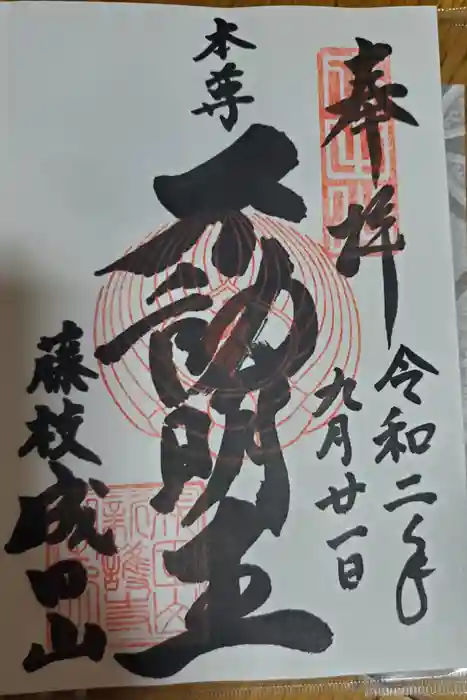 奉拝
令和二年
九月廿一日
本尊
不動明王
藤枝成田山